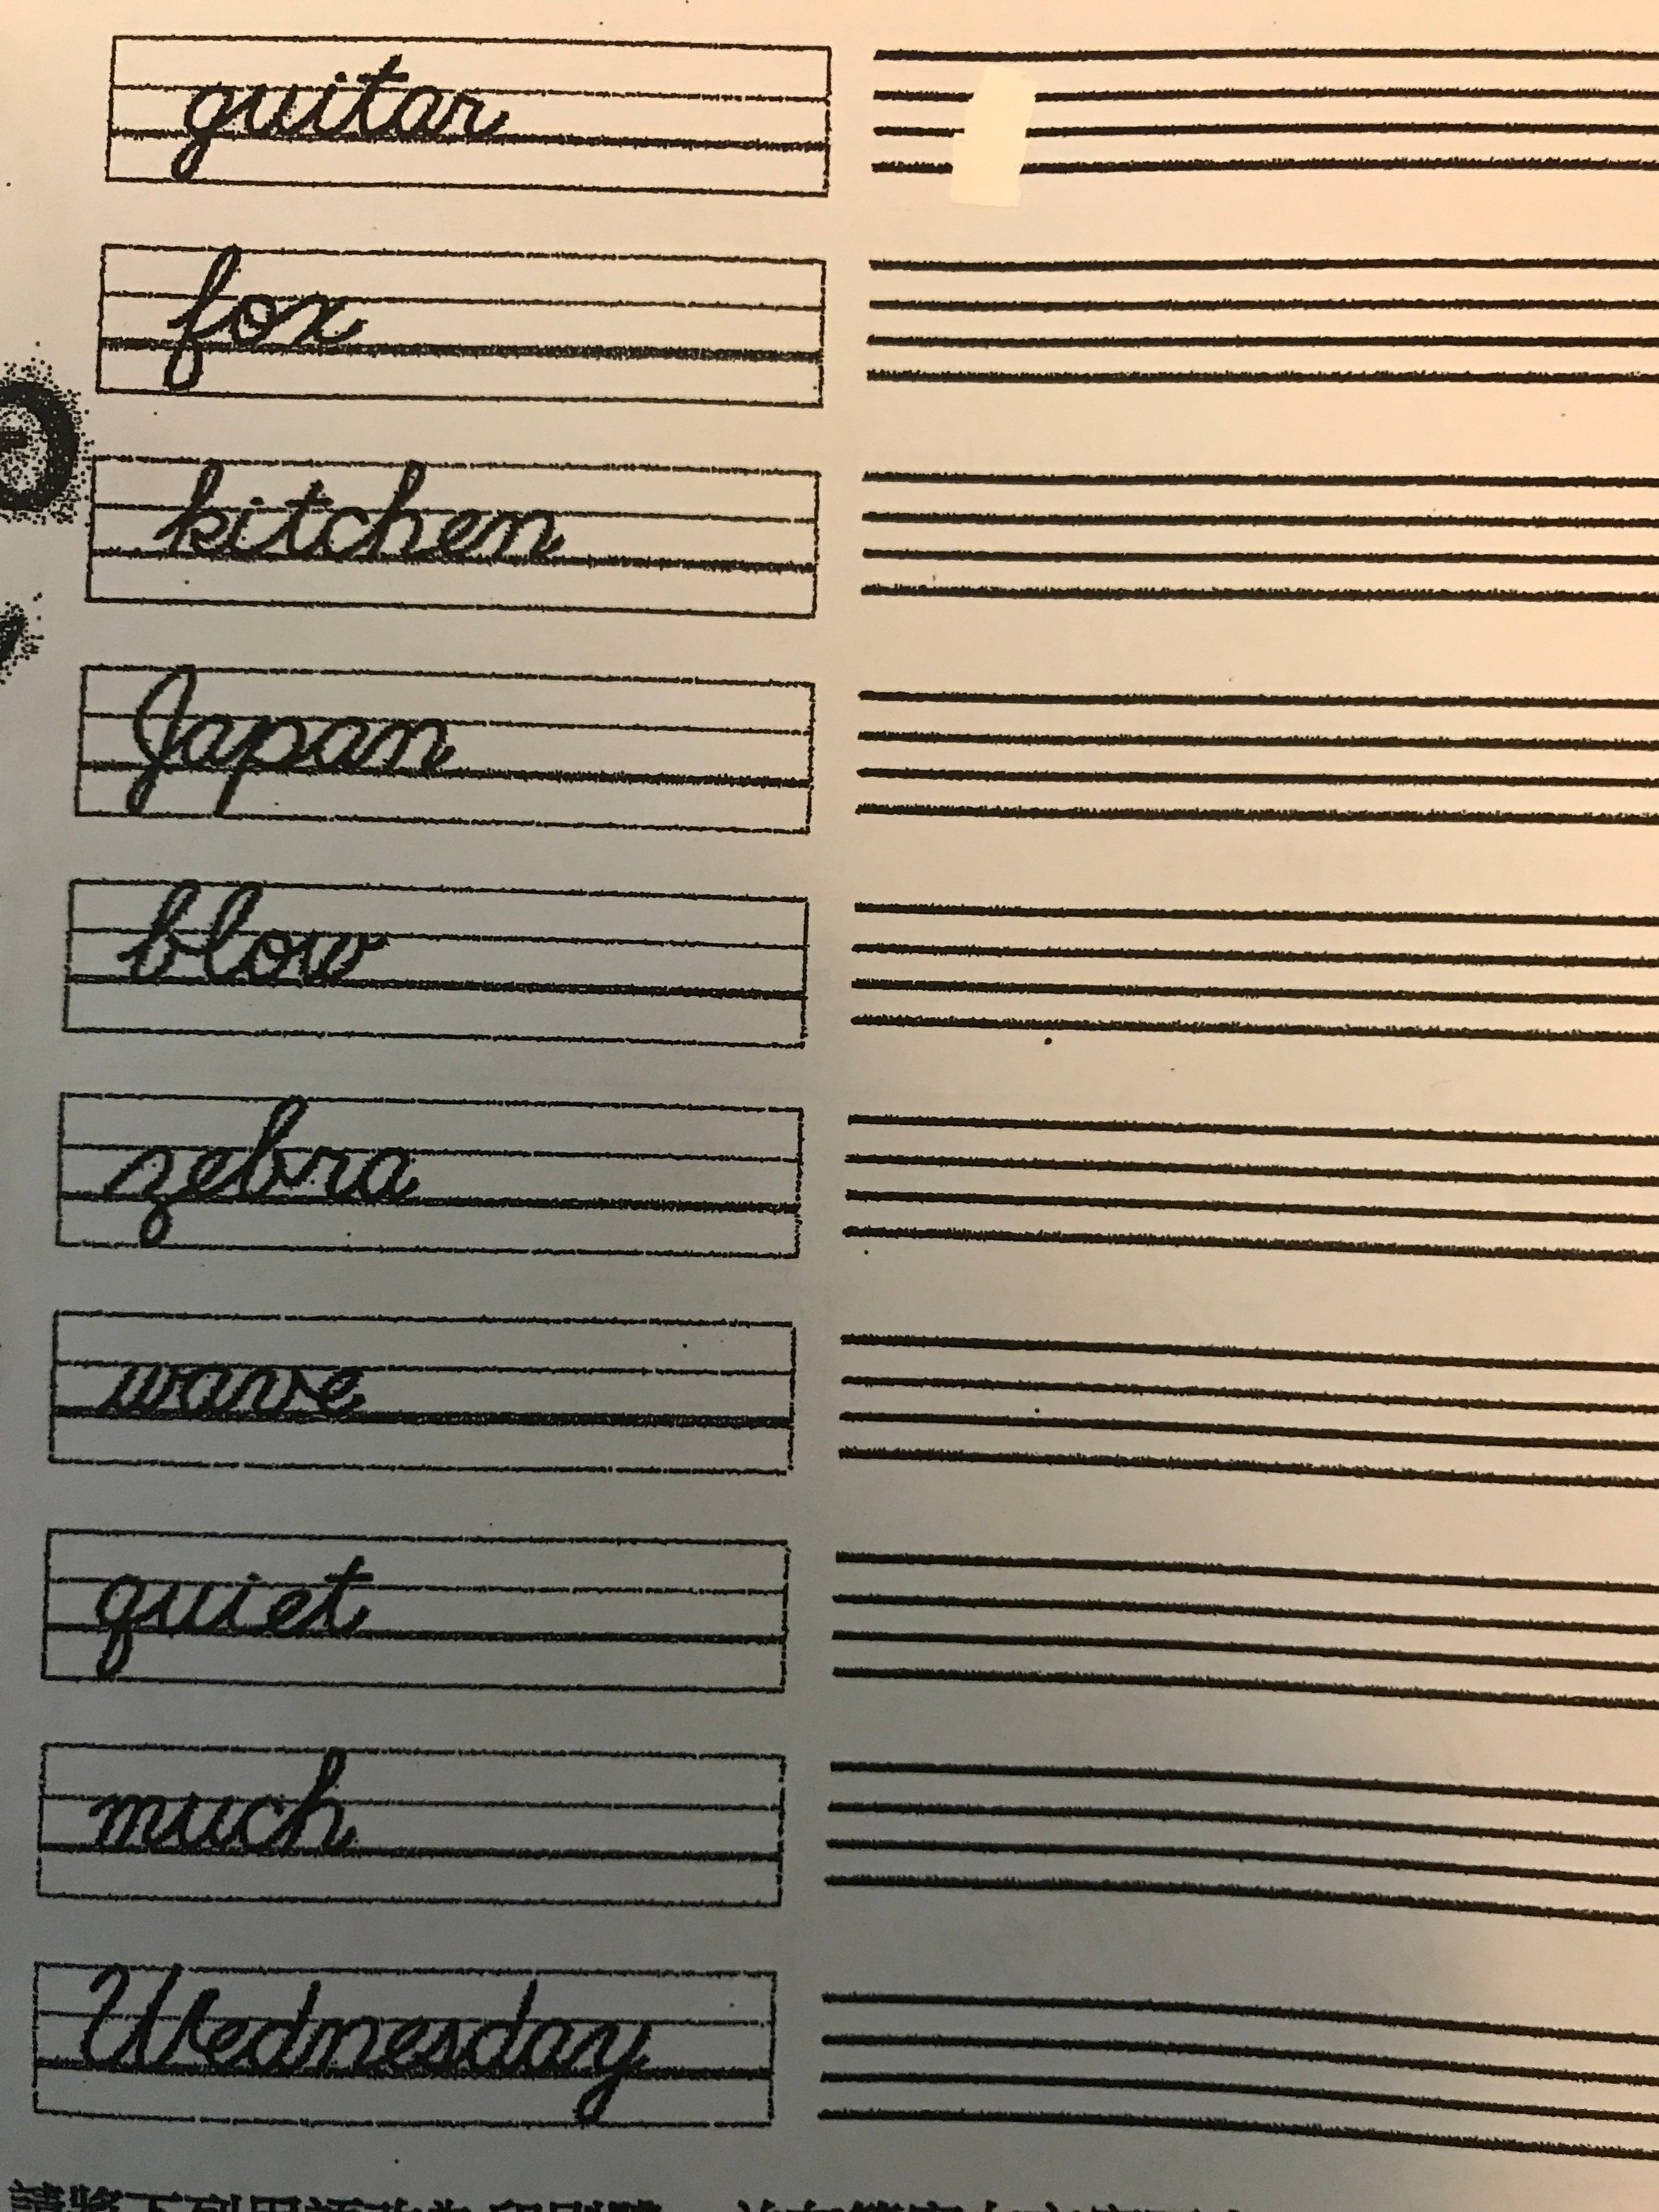 guitar
fox
kitchen
Japan
blow
zebra
wave
quiet
much
Wednesday